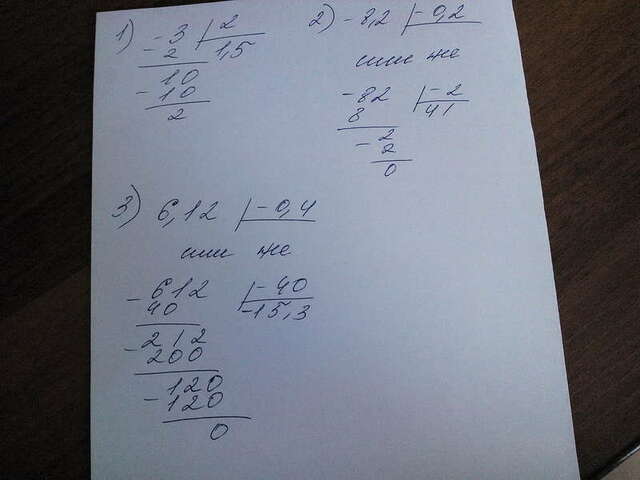 1) - 3 | 2
- 2 1,5
10
- 10
2
2) - 8,2 | - 0,2
или же
- 82 | - 2
8 41
- 2
2
0
3) 6,12 | - 0,4
или же
- 612 | - 40
40 -15,3
- 212
200
120
- 120
0